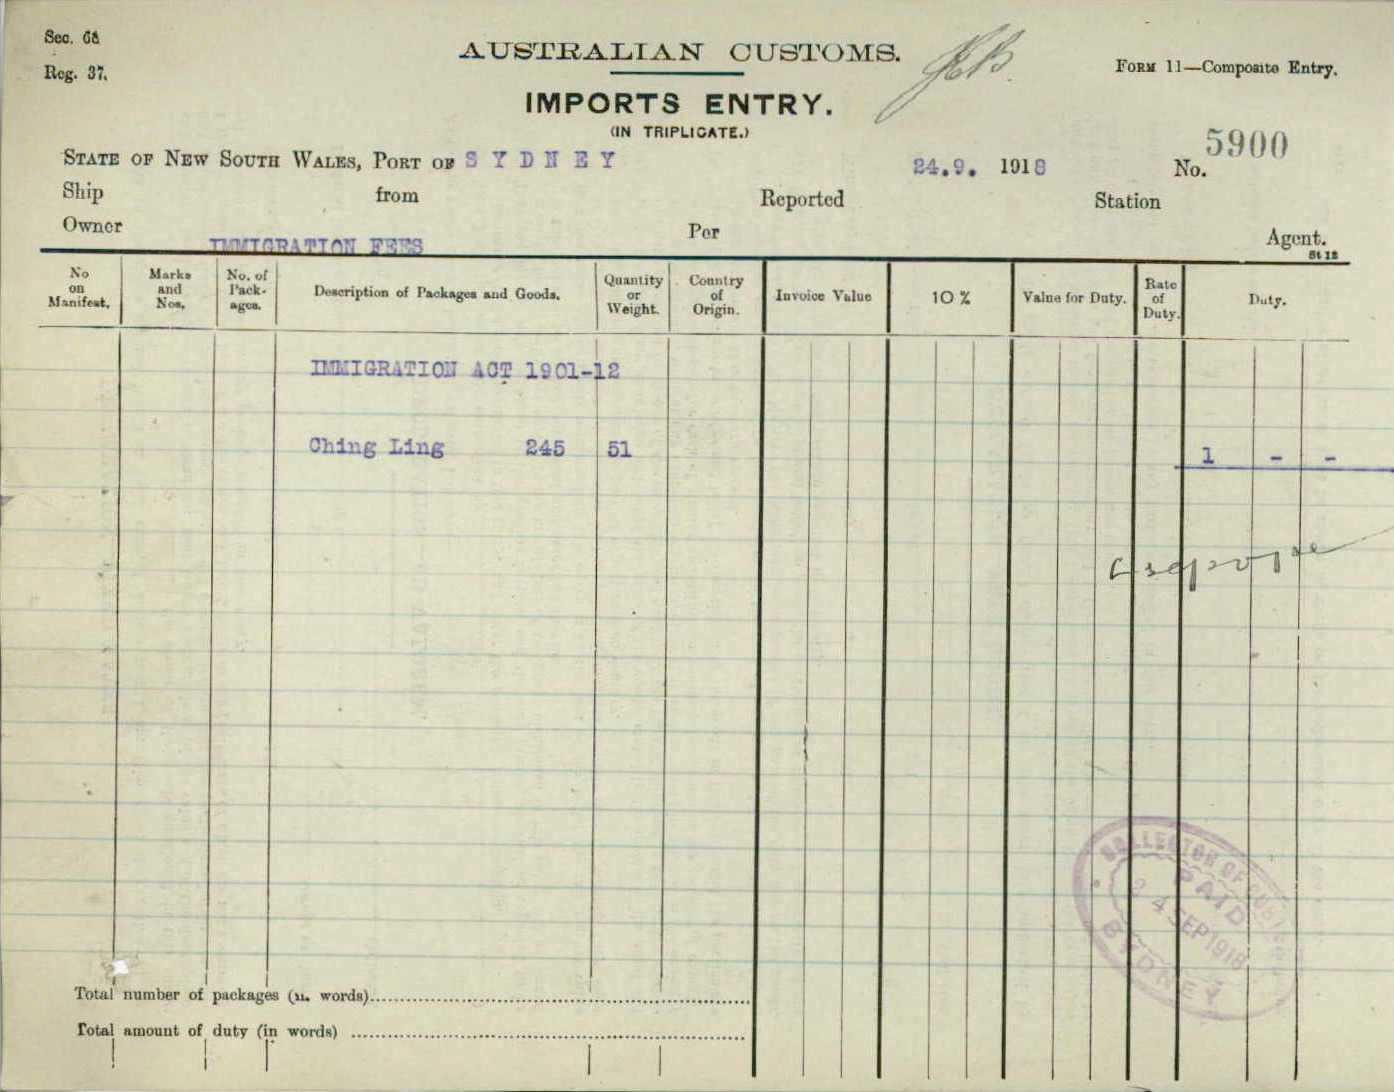 Sec. 68
Reg. 37.
AUSTRALIAN CUSTOMS.
FORM 11—Composite Entry.
IMPORTS ENTRY.
(IN TRIPLICATE.)
STATE OF NEW SOUTH WALES, PORT OF SYDNEY 24.9. 1918 No. 5900
Ship from Reported Station
Owner IMMIGRATION FEES Per Agent.
St 12
No on Manifest. Marks and Nos. No. of Pack-ages. Description of Packages and Goods. Quantity or Weight. Country of Origin. Invoice Value 10 % Value for Duty. Rate of Duty. Duty.
IMMIGRATION ACT 1901-12
Ching Ling 245 51 1 - -
COLLECTOR OF CUSTOMS
PAID
24 SEP 1918
SYDNEY
Total number of packages (in words)
Total amount of duty (in words)